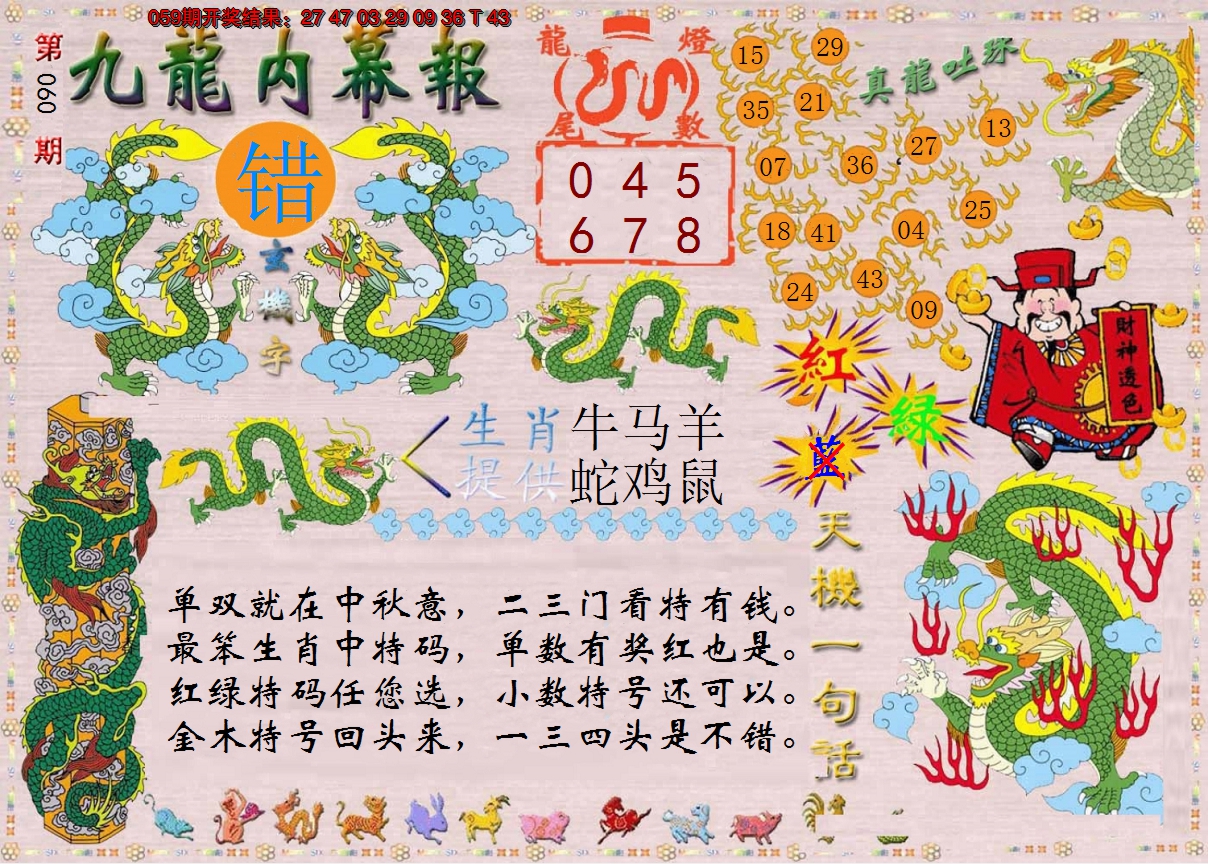 059期开奖结果：27 47 03 29 09 36 T 43
第
060
期
九龍内幕報
错
玄
機
字
龍 燈
尾 數
0 4 5
6 7 8
真龍吐珠
15 29
35 21
07 36 27 13
18 41 04 25
24 43 09
財神透色
紅
緑
藍
生肖 牛马羊
提供 蛇鸡鼠
单双就在中秋意，二三门看特有钱。
最笨生肖中特码，单数有奖红也是。
红绿特码任您选，小数特号还可以。
金木特号回头来，一三四头是不错。
天機一句話